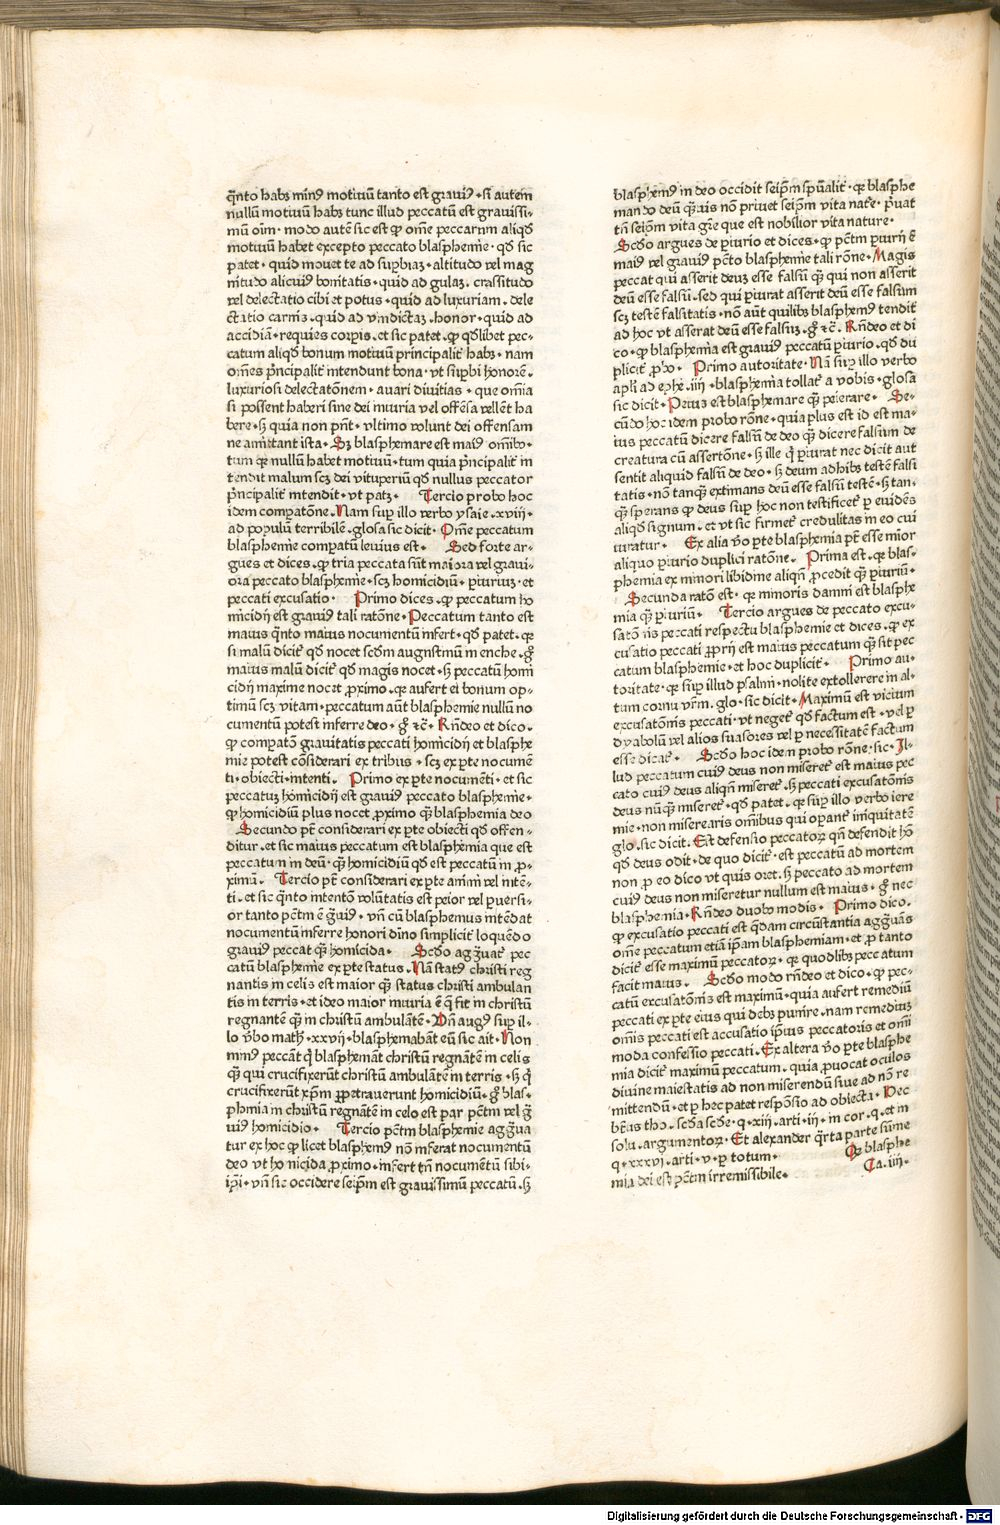 q̄nto habꝫ minꝰ motiuū tanto est grauiꝰ. si autem
nullū motiuū habꝫ tunc illud peccatū est grauissi-
mū oīm. modo autē sic est ꝙ om̄e peccatum aliqḋ
motiuū habet excepto peccato blasphemie. qḋ sic
patet. quid mouet te ad suꝑbiaꝫ. altitudo vel mag
nitudo alicuiꝰ bonitatis. quid ad gulaꝫ. crassitudo
vel delectatio cibi et potus. quid ad luxuriam. dele
ctatio carnis. quid ad vindictaꝫ. honor. quid ad
accidiā. requies corꝑis. et sic patet. ꝙ qḋlibet pec-
catum aliqḋ bonum motiuū principalit̄ habꝫ. nam
om̄es p̄ncipalit̄ intendunt bona. vt suꝑbi honorē.
luxuriosi delectatōnem. auari diuitias. que omīa
si possent haberi sine dei iniuria vel offēsa vellent ha
bere. sꝫ quia non pn̄t. vltimo volunt dei offensam
ne amittant ista. Sꝫ blasphemare est maiꝰ om̄ibꝰ.
tum qꝛ nullū habet motiuū. tum quia p̄ncipalit̄ in
tendit malum scꝫ dei vituperiū qḋ nullus peccator
p̄ncipalit̄ intendit. vt patꝫ. Tercio probo hoc
idem comꝑatōne. Nam suꝑ illo verbo ysaie .xviij.
ad populū terribilē. glosa sic dicit. Om̄e peccatum
blasphemie comꝑatū leuius est. Sed forte ar-
gues et dices. ꝙ tria peccata sūt maiora vel graui-
ora peccato blasphemie. scꝫ homicidiū. ꝑiuriuꝫ. et
peccati excusatio. Primo dices. ꝙ peccatum ho
micidij est grauiꝰ tali ratōne. Peccatum tanto est
maius q̄nto maius nocumentū infert. qḋ patet. qꝛ
si malū dicit̄ qḋ nocet scḋm augustinū in enche. gͦ
maius malū dicit̄ qḋ magis nocet. sꝫ peccatū homi
cidij maxime nocet ꝓximo. qꝛ aufert ei bonum op-
timū scꝫ vitam. peccatum aūt blasphemie nullū no
cumentū potest inferre deo. gͦ ⁊c̄. Rn̄deo et dico.
ꝙ comꝑatō grauitatis peccati homicidij et blasphe
mie potest cōsiderari ex tribus. scꝫ ex ꝑte nocumē
ti. obiecti. intenti. Primo ex ꝑte nocumēti. et sic
peccatuꝫ homicidij est grauiꝰ peccato blasphemie.
ꝙ homicidiū plus nocet ꝓximo q̄ꝫ blasphemia deo
Secundo pt̄ considerari ex ꝑte obiecti qḋ offen-
ditur. et sic maius peccatum est blasphemia que est
peccatum in deū. q̄ꝫ homicidiū qḋ est peccatū in ꝓ-
ximū. Tercio pt̄ considerari ex ꝑte animi vel intē-
ti. et sic q̄nto intentō volūtatis est peior vel ꝑuersi-
or tanto pctm̄ ē ḡuiꝰ. vn̄ cū blasphemus intēdat
nocumentū inferre honori diuīo simplicit̄ loquēdo
grauiꝰ peccat q̄ꝫ homicida. Scḋo agḡuat̄ pec
catū blasphemie ex ꝑte status. Nā statꝰ christi reg
nantis in celis est maior q̄ꝫ status christi ambulan
tis in terris. et ideo maior iniuria ē q̄ fit in christū
regnantē q̄ꝫ in christū ambulātē. Vn̄ augꝰ suꝑ il-
lo v̄bo math. xxvij. blasphemabāt eū sic ait. Non
minꝰ peccāt q̄ blasphemāt christū regnātē in celis
q̄ꝫ qui crucifixerūt christū ambulātē in terris. sꝫ q̄
crucifixerūt xp̄m ꝑpetrauerunt homicidiū. gͦ blas-
phemia in christū regnātē in celo est par pctm̄ vel ḡ
uiꝰ homicidio. Tercio pctm̄ blasphemie agḡua
tur ex hoc ꝙ licet blasphemꝰ nō inferat nocumentū
deo vt homicida ꝓximo. infert tn̄ nocumētū sibi-
ip̄i. vn̄ sic occidere seip̄m est grauissimū peccatū. sꝫ
blasphemꝰ in deo occidit seip̄m sp̄ualit̄. qꝛ blasphe
mando deū q̄ꝫuis nō priuet seip̄m vita natᵉ. p̄uat
tn̄ seip̄m vita gr̄e que est nobilior vita nature.
Scḋo argues de ꝑiurio et dices. ꝙ pctm̄ ꝑiurij ē
maiꝰ vel grauiꝰ pctō blasphemie tali rōne. Magis
peccat qui asserit deuꝫ esse falsū q̄ꝫ qui non asserit
deū esse falsū. sed qui ꝑiurat asserit deū esse falsum
scꝫ testē falsitatis. nō aūt quilibꝫ blasphemꝰ tendit
ad hoc vt asserat deū esse falsuꝫ. gͦ ⁊c̄. Rn̄deo et di
co. ꝙ blasphemia est grauiꝰ peccatū ꝑiurio. qḋ du
plicit̄ ꝓbo. Primo autoritate. Nā suꝑ illo verbo
apl̄i ad ephe. iiij. blasphemia tollat̄ a vobis. glosa
sic dicit. Peiꝰ est blasphemare q̄ꝫ peierare. Se-
cūdo hoc idem probo rōne. quia plus est id est ma-
ius peccatū dicere falsū de deo q̄ꝫ dicere falsum de
creatura cū assertōne. sꝫ ille q̄ ꝑiurat nec dicit aut
sentit aliquid falsū de deo. sꝫ deum adhibꝫ testē falsi
tatis. nō tanq̄ꝫ extimans deū esse falsū testē. sꝫ tan-
q̄ꝫ sperans ꝙ deus suꝑ hoc non testificet̄ ꝑ euidēs
aliqḋ signum. et vt sic firmet̄ credulitas in eo cui
iuratur. Ex alia v̄o ꝑte blasphemia pt̄ esse minor
aliquo ꝑiurio duplici ratōne. Prima est. qꝛ blas-
phemia ex minori libidine aliqn̄ ꝓcedit q̄ꝫ ꝑiuriū.
Secunda ratō est. qꝛ minoris damni est blasphe
mia q̄ꝫ ꝑiuriū. Tercio argues de peccato excu-
satōnis peccati respectu blasphemie et dices. ꝙ ex
cusatio peccati ꝓprij est maius peccatum q̄ꝫ sit pec
catum blasphemie. et hoc duplicit̄. Primo au-
toritate. qꝛ suꝑ illud psalmi. nolite extollere in al-
tum cornu vr̄m. glo. sic dicit. Maximū est vicium
excusatōnis peccati. vt neget̄ qḋ factum est. vel ꝑ
dyabolū vel alios suasores vel ꝑ necessitatē factum
esse dicat̄. Scḋo hoc idem probo rōne. sic. Il-
lud peccatum cuiꝰ deus non miseret̄ est maius pec
cato cuiꝰ deus aliqn̄ miseret̄. sꝫ peccati excusatōnis
deus nūq̄ꝫ miseret̄. qḋ patet. qꝛ suꝑ illo verbo iere
mie. non miserearis omībus qui oꝑant̄ iniquitatē
glo. sic dicit. Est defensio peccatoꝝ qn̄ defendit hō
qḋ deus odit. de quo dicit̄. est peccatū ad mortem
non ꝓ eo dico vt quis oret. sꝫ peccato ad mortem
cuiꝰ deus non miseretur nullum est maius. gͦ nec
blasphemia. Rn̄deo duobꝰ modis. Primo dico.
ꝙ excusatio peccati est q̄dam circūstantia agḡuās
om̄e peccatum etiā ip̄am blasphemiam. et ꝓ tanto
dicit̄ esse maximū peccatoꝝ. qꝛ quodlibꝫ peccatum
facit maius. Scḋo modo rn̄deo et dico. ꝙ pec-
catū excusatōnis est maximū. quia aufert remediū
peccati ex ꝑte eius qui debꝫ punire. nam remediuꝫ
om̄is peccati est accusatio ip̄ius peccatoris et omni
moda confessio peccati. Ex altera v̄o ꝑte blasphe
mia dicit̄ maximū peccatum. quia ꝓuocat oculos
diuine maiestatis ad non miserendū siue ad nō re
mittendū. et ꝑ hec patet respōsio ad obiecta. Hec
bt̄us tho. scḋa scḋe. q. xiij. arti. iij. in cor. q. et in
solu. argumentoꝝ. Et alexander q̄rta parte sūme
q. xxxvj. arti. v. ꝑ totum. Qꝙ blasphe
mia dei est pctm̄ irremissibile. Ca. iiij.